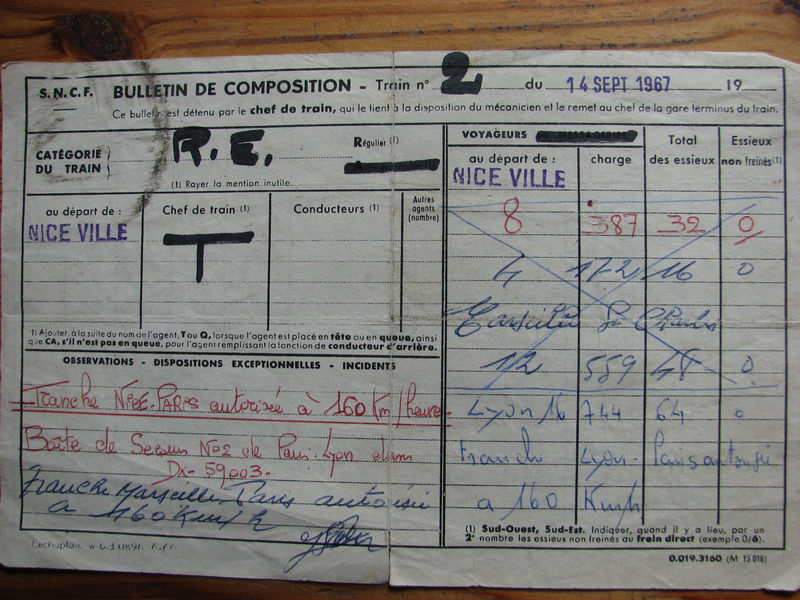 S.N.C.F. BULLETIN DE COMPOSITION - Train n° 2 du 14 SEPT 1967 19
Ce bulletin est détenu par le chef de train, qui le tient à la disposition du mécanicien et le remet au chef de la gare terminus du train.
CATÉGORIE DU TRAIN
R.E.
Régulier (1)
(1) Rayer la mention inutile.
au départ de :
NICE VILLE
Chef de train (1)
T
Conducteurs (1)
Autres agents (nombre)
1) Ajouter, à la suite du nom de l'agent, T ou Q, lorsque l'agent est placé en tête ou en queue, ainsi
que CA, s'il n'est pas en queue, pour l'agent remplissant la fonction de conducteur d'arrière.
OBSERVATIONS - DISPOSITIONS EXCEPTIONNELLES - INCIDENTS
Tranche NICE-PARIS autorisée à 160 Km/heure
Boîte de Secours N°2 de Paris-Lyon dans
DX-59003-
Tranche Marseille Paris autorisée
a 160 Km/h
VOYAGEURS
au départ de :
NICE VILLE
charge
Total des essieux
Essieux non freinés(1)
8 387 32 0
4 172 16 0
Marseille St Charles
12 559 48 0
Lyon 16 744 64 0
Tranche Lyon-Paris autorisée
a 160 Km/h
(1) Sud-Ouest, Sud-Est. Indiquer, quand il y a lieu, par un
2e nombre les essieux non freinés au frein direct (exemple 0/6).
0.019.3160 (M 13 016)